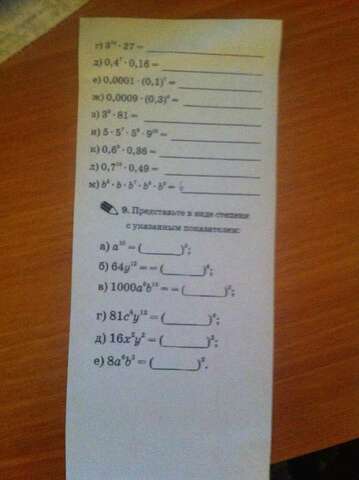 г) 3¹⁰ · 27 =
д) 0,4⁷ · 0,16 =
е) 0,0001 · (0,1)⁷ =
ж) 0,0009 · (0,3)⁶ =
з) 3⁵ · 81 =
и) 5 · 5⁷ · 5⁹ ·
к) 0,6⁵ · 0,36 =
л) 0,7¹⁰ · 0,49 =
м)
9. Представьте в виде степени
с указанным показателем:
а) a¹⁰ = (______)²;
б) 64y¹² = = (______)⁶;
в) 1000a⁶b¹⁵ = = (______)³;
г) 81c⁸y¹² = (______)⁴;
д) 16x²y² = (______)²;
е) 8a⁶b³ = (______)³.